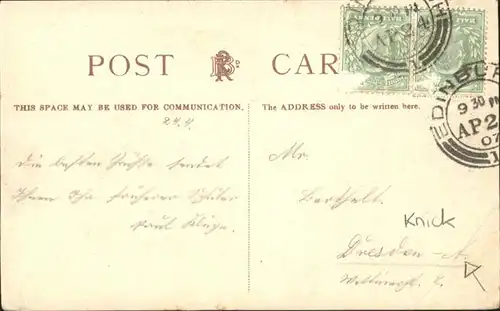 POST CAR
THIS SPACE MAY BE USED FOR COMMUNICATION.
The ADDRESS only to be written here.
HALFPENNY
HALFPENNY
EDINBURGH
9 30 PM
AP 24
07
24.4.
Die besten Grüße sendet
Ihnen Ihr früherer Schüler
Paul Kluge.
Mr.
Berthelt.
Knick
Dresden-A.